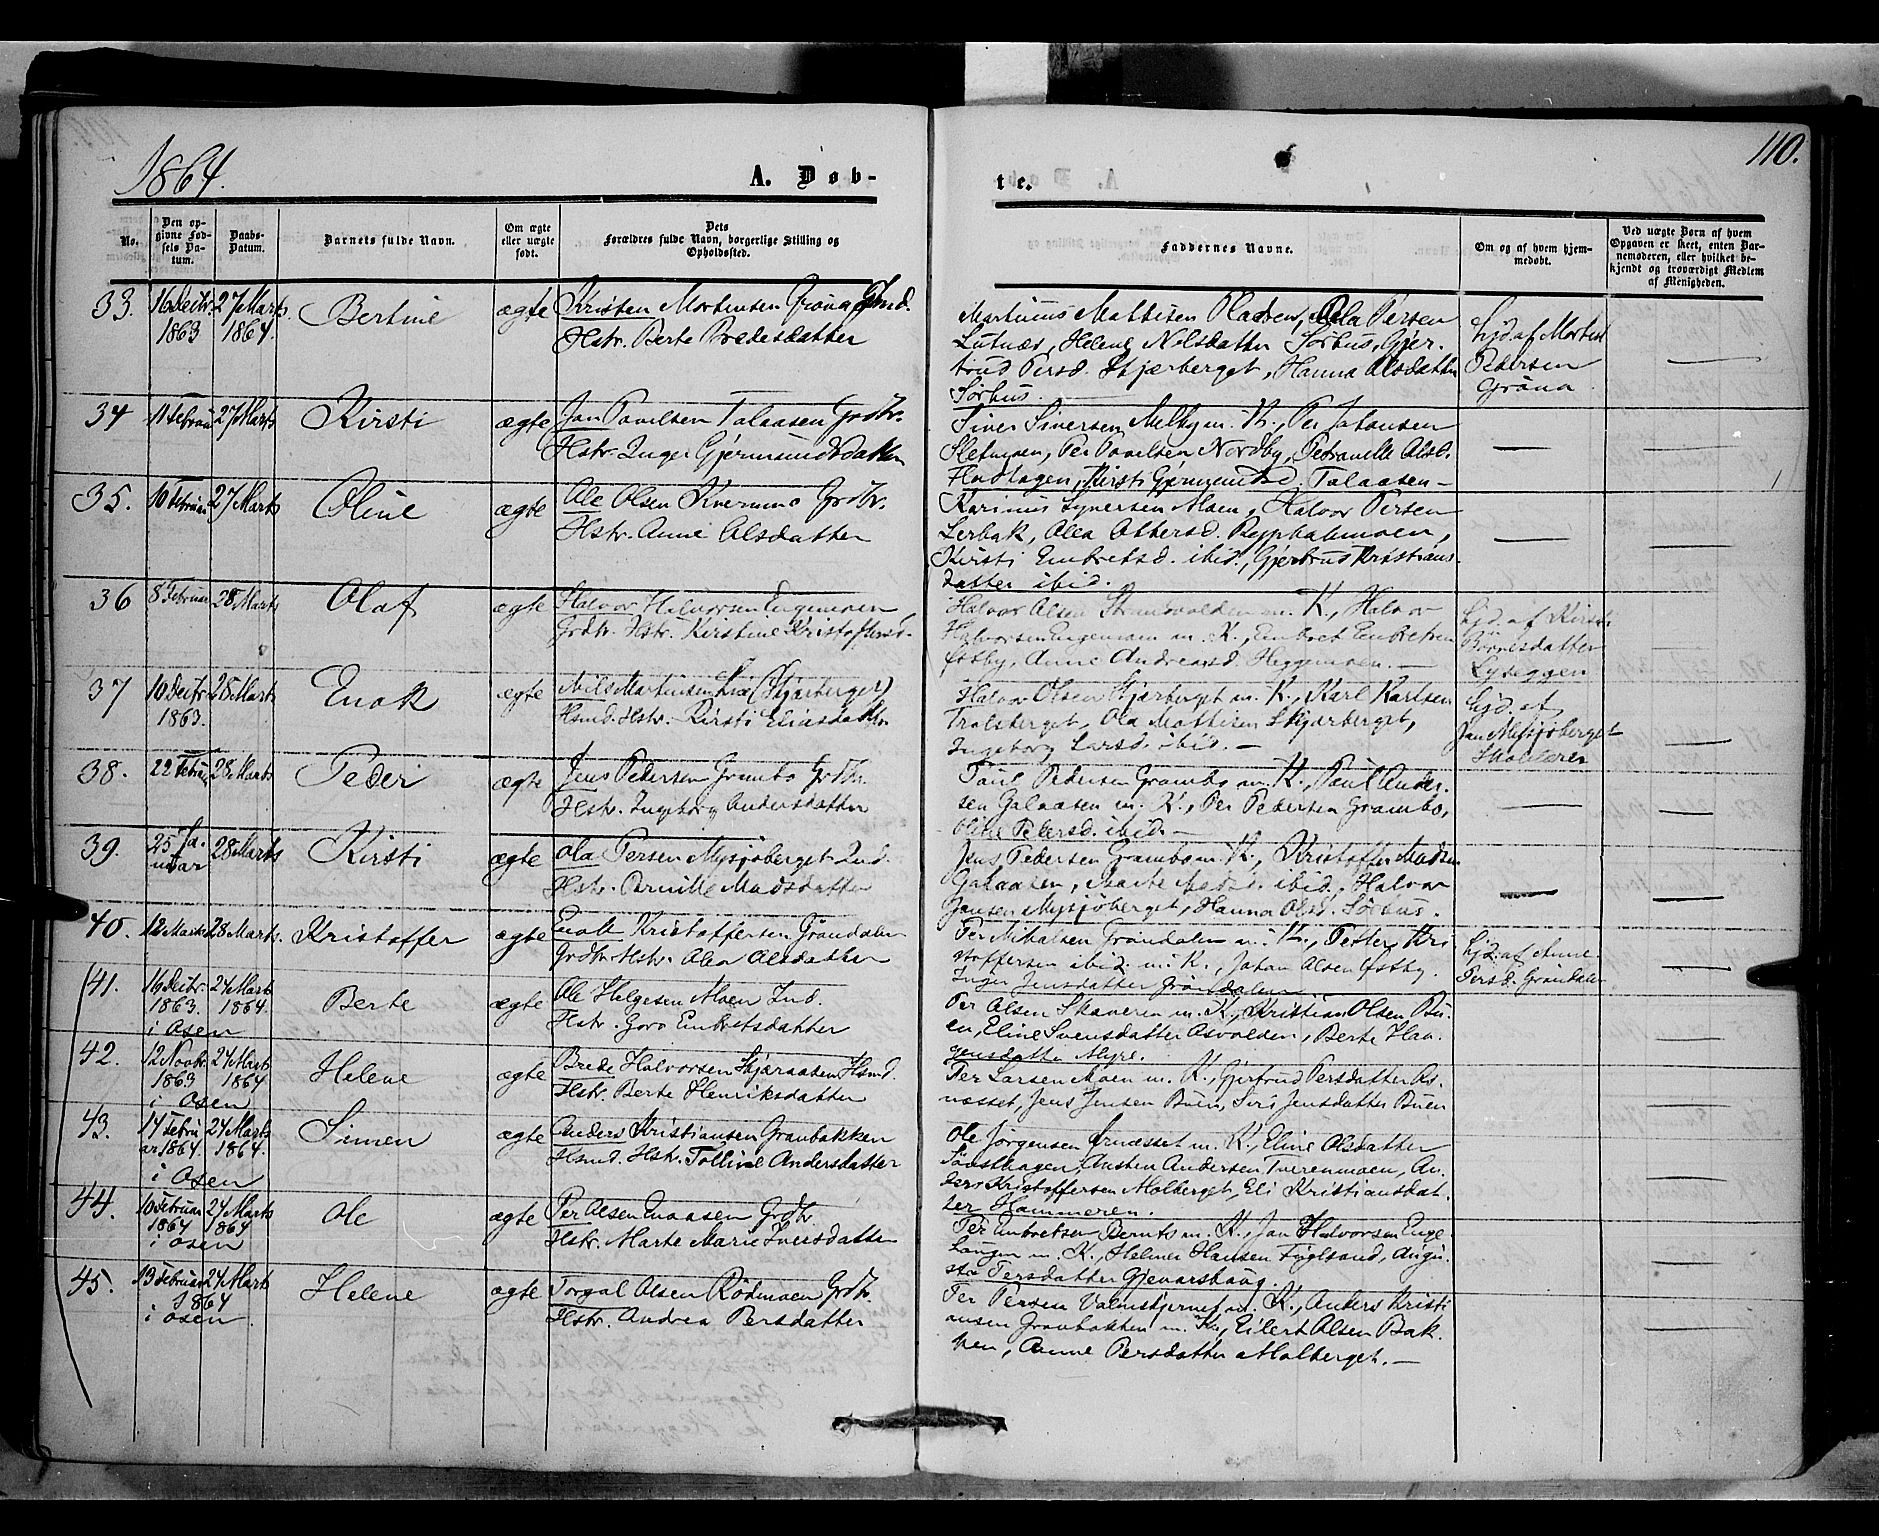 1864.
A. Døb-
te.
110.
No.
Den op-
givne Fød-
sels Da-
tum.
Daabs-
Datum.
Barnets fulde Navn.
Om ægte
eller uægte
født.
Dets
Forældres fulde Navn, borgerlige Stilling og
Opholdssted.
Faddernes Navne.
Om og af hvem hjem-
medøbt.
Ved uægte Børn af hvem
Opgaven er skeet, enten Bar-
nemoderen, eller hvilket be-
kjendt og troværdigt Medlem
af Menigheden.
33. 16 Decbr. 27 Marts Bertine ægte Kristen Mortensen Gröna Hsmd.
1863 1864. Hstr. Berte Bredesdatter
Martinus Mattisen Pladsen, Ola Persen
Lutnæs, Helene Nilsdatter Sörhus, Gjer-
trud Persd. Skjærberget, Hanna Olsdatter
Sörhus.
hjd. af Morten
Pedersen
Gröna
34 11 Februar 27 Marts Kirsti ægte Jan Pouelsen Galaasen Grdbr.
Hstr. Inger Gjermundsdatter
Siver Siversen m. K., Per Johansen
Sletmoen, Per Povelsen Nordby, Petronelle Olsd.
Kirsti Gjermundsd. Galaasen —
35. 10 Februar 27 Marts Oline ægte Ole Olsen Kvernmo Grdbr.
Hstr. Anne Olsdatter
Karinus Syversen Moen, Halvor Persen
Lerbak, Olea Ottersd.
Kirsti Embretsd. ibid., Gjertrud Kristians-
datter ibid.
36 8 Februar 28 Marts Olaf ægte Halvor Halvorsen Engemoen
Grdbr. Hstr. Kirstine Kristoffersd.
Halvor Olsen Strandvolden m. K., Halvor
Halvorsen Engemoen m. K., Embret Embretsen
Östby, Anne Andreasd. Heggemoen. —
hjd. af Kirsti
Börresdatter
Lyseggen
37 10 Decbr. 28 Marts Enok ægte Nils Martinsen Lia (Skjærberget)
1863. Hsmd. Hstr. Kirsti Eliasdatter
Halvor Olsen Skjærberget m. K., Karl Karlsen
Tralsberget, Ola Mattisen Skjærberget,
Ingeborg Larsd. ibid. —
hjd. af
Jan Mysjöberget
Skolelærer
38. 22 Februar 28 Marts Peder ægte Jens Pedersen Grambo Grdbr.
Hstr. Ingeborg Andersdatter
Paul Pedersen Grambo m. K., Paul Ander-
sen Galaasen m. K., Per Pedersen Grambo,
Oline Pedersd. ibid. —
39. 25 Ja- 28 Marts Kirsti ægte Ola Persen Mysjöberget Ind.
nuar Hstr. Pernille Madsdatter
Jens Pedersen Grambo m. K., Kristoffer Madsen
Galaasen, Marte Madsd. ibid., Halvor
Jansen Mysjöberget, Hanna Olsd. Sörhus.
40. 12 Marts 28 Marts. Kristoffer ægte Enok Kristoffersen Gröndalen
Grdbr. Hstr. Olea Olsdatter
Per Mikalsen Gröndalen m. K., Petter Kri
stoffersen ibid. m. K., Johan Olsen Östby.
Inger Jensdatter Gröndalen
hjd. af Anne
Persd. Gröndalen
41. 16 Decbr. 24 Marts Berte ægte Ole Helgesen Moen Ind.
1863. 1864. Hstr. Goro Embretsdatter
i Osen
Per Olsen Skaveren m. K., Kristian Olsen Bu-
en, Eline Svensdatter Osvolden, Berte Haa-
gensdatter Myre.
42. 12 Novbr. 24 Marts Helene ægte Brede Halvorsen Skjæraasen Hsmd.
1863 1864 Hstr. Berte Henriksdatter
i Osen
Per Larsen Moen m. K., Gjertrud Persdatter Os-
næsset, Jens Jensen Buen, Siri Jensdatter Buen
43. 14 Febru 24 Marts Simen ægte Anders Kristiansen Granbakken
ar 1864. 1864. Hsmd. Hstr. Tolline Andersdatter
i Osen
Ole Jörgensen Ornæsset m. K., Eline Olsdatter
Austen Andersen Tverenmoen, An-
ders Kristoffersen Molberget, Eli Kristiansdat-
ter Hammeren.
44. 10 Februar 24 Marts Ole ægte Per Olsen Grdbr.
1864 1864 Hstr. Marte Marie Iversdatter
i Osen
Per Embretsen Berntz m. K., Jan Halvorsen Enge-
m. K., Helmer Hansen Fuglsand, Augu-
sta Persdatter Gjenarshaug.
45. 13 Februar 24 Marts Helene ægte Torgal Olsen Rödmoen Grdbr.
1864 Hstr. Andrea Persdatter
i Osen
Per Persen Valmstjernet m. K., Anders Kristi
ansen Granbakken m. K., Eilert Olsen Bak-
ken, Anne Persdatter Molberget. —